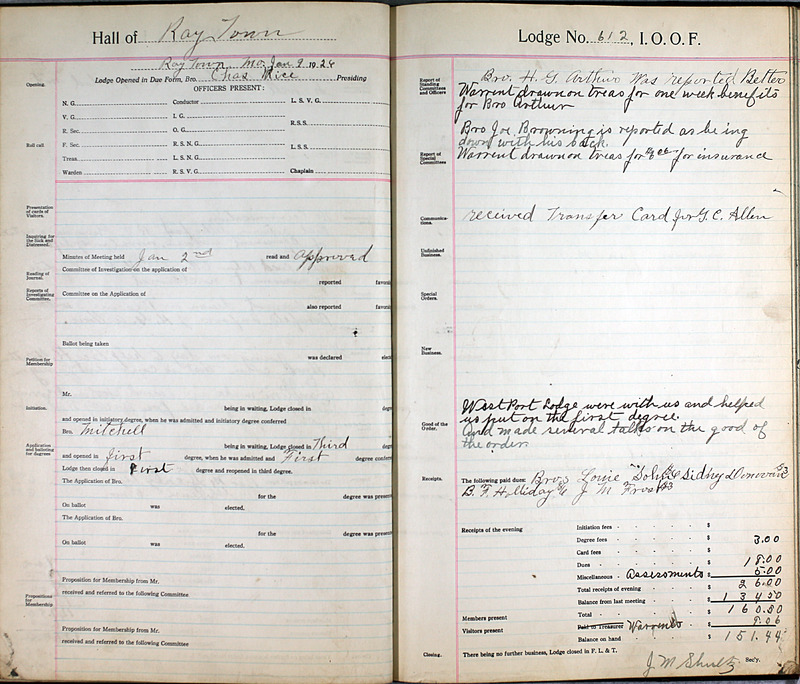 Hall of Ray Town
Ray Town Mo Jan 9 1924
Lodge Opened in Due Form, Bro. Chas Rice Presiding
OFFICERS PRESENT:
Opening.
N. G. Conductor L. S. V. G.
V. G. I. G.
R. Sec. O. G. R.S.S.
Roll call F. Sec. R. S. N. G. L. S. S.
Treas. L. S. N. G.
Warden R. S. V. G. Chaplain
Presentation of cards of Visitors.
Inquiring for the Sick and Distressed.
Minutes of Meeting held Jan 2nd read and approved
Committee of Investigation on the application of
Reading of Journal.
reported
Reports of Investigating Committee.
Committee on the Application of
also reported
Ballot being taken
was declared
Petition for Membership
Mr.
Initiation. being in waiting, Lodge closed in
and opened in initiatory degree, when he was admitted and initiatory degree conferred
Bro. Mitchell
Application and balloting for degrees
being in waiting, Lodge closed in Third
and opened in first degree, when he was admitted and First degree
Lodge then closed in First degree and reopened in third degree.
The Application of Bro.
for the degree was
On ballot was elected.
The Application of Bro.
for the degree was
On ballot was elected.
Propositions for Membership.
Proposition for Membership from Mr.
received and referred to the following Committee
Proposition for Membership from Mr.
received and referred to the following Committee
Lodge No. 612, I. O. O. F.
Report of Standing Committees and Officers
Bro. H. G. Arthur was reported Better
Warrent drawn on treas for one week benefits
for Bro Arthur
Bro Joe. Browning is reported as being
down with his back.
Report of Special Committees
Warrent drawn on treas for for insurance
Communications.
received Transfer Card for G. C. Allen
Unfinished Business.
Special Orders.
New Business.
Good of the Order.
West Port Lodge were with us and helped
us put on the first degree.
and made several talks on the good of
the order.
Receipts. The following paid dues: Bros Louie Sidney Donovan $3
B. F. Holliday J M Frost $3
Receipts of the evening Initiation fees $
Degree fees $ 3.00
Card fees $
Dues $ 18.00
Miscellaneous Assessments $ 5.00
Total receipts of evening $ 26.00
Balance from last meeting $ 134.50
Members present Total $ 160.50
Visitors present Paid to Treasurer Warrents $ 9.06
Balance on hand $ 151.44
Closing. There being no further business, Lodge closed in F. L. & T.
J M Shultz Sec'y.